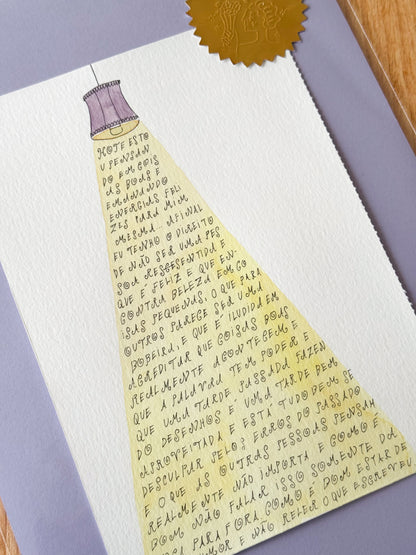 HOJE ESTO
U PENSAN
DO EM COIS
AS BOAS E
EMANANDO
ENERGIAS FELI
ZES PARA MIM
MESMA... AFINAL
EU TENHO O DIREITO
DE NÃO SER UMA PES
SOA RESSENTIDA E
QUE É FELIZ E QUE EN-
CONTRA BELEZA EM CO
ISAS PEQUENAS, O QUE PARA
OUTROS PARECE SER UMA
BOBEIRA, E QUE É ILUDIDA EM
ACREDITAR QUE COISAS BOAS
REALMENTE ACONTECEM E
QUE A PALAVRA TEM PODER E
QUE UMA TARDE PASSADA FAZEN
DO DESENHOS É UMA TARDE BEM
APROVEITADA E ESTÁ TUDO BEM SE
DESCULPAR PELOS ERROS DO PASSADO
E O QUE AS OUTRAS PESSOAS PENSAM
REALMENTE NÃO IMPORTA E COMO É
BOM NÃO FALAR ISSO SOMENTE DA
PARA FORA COMO É BOM ESTAR DE
MOR E NÃO RELER O QUE ESCREVEU